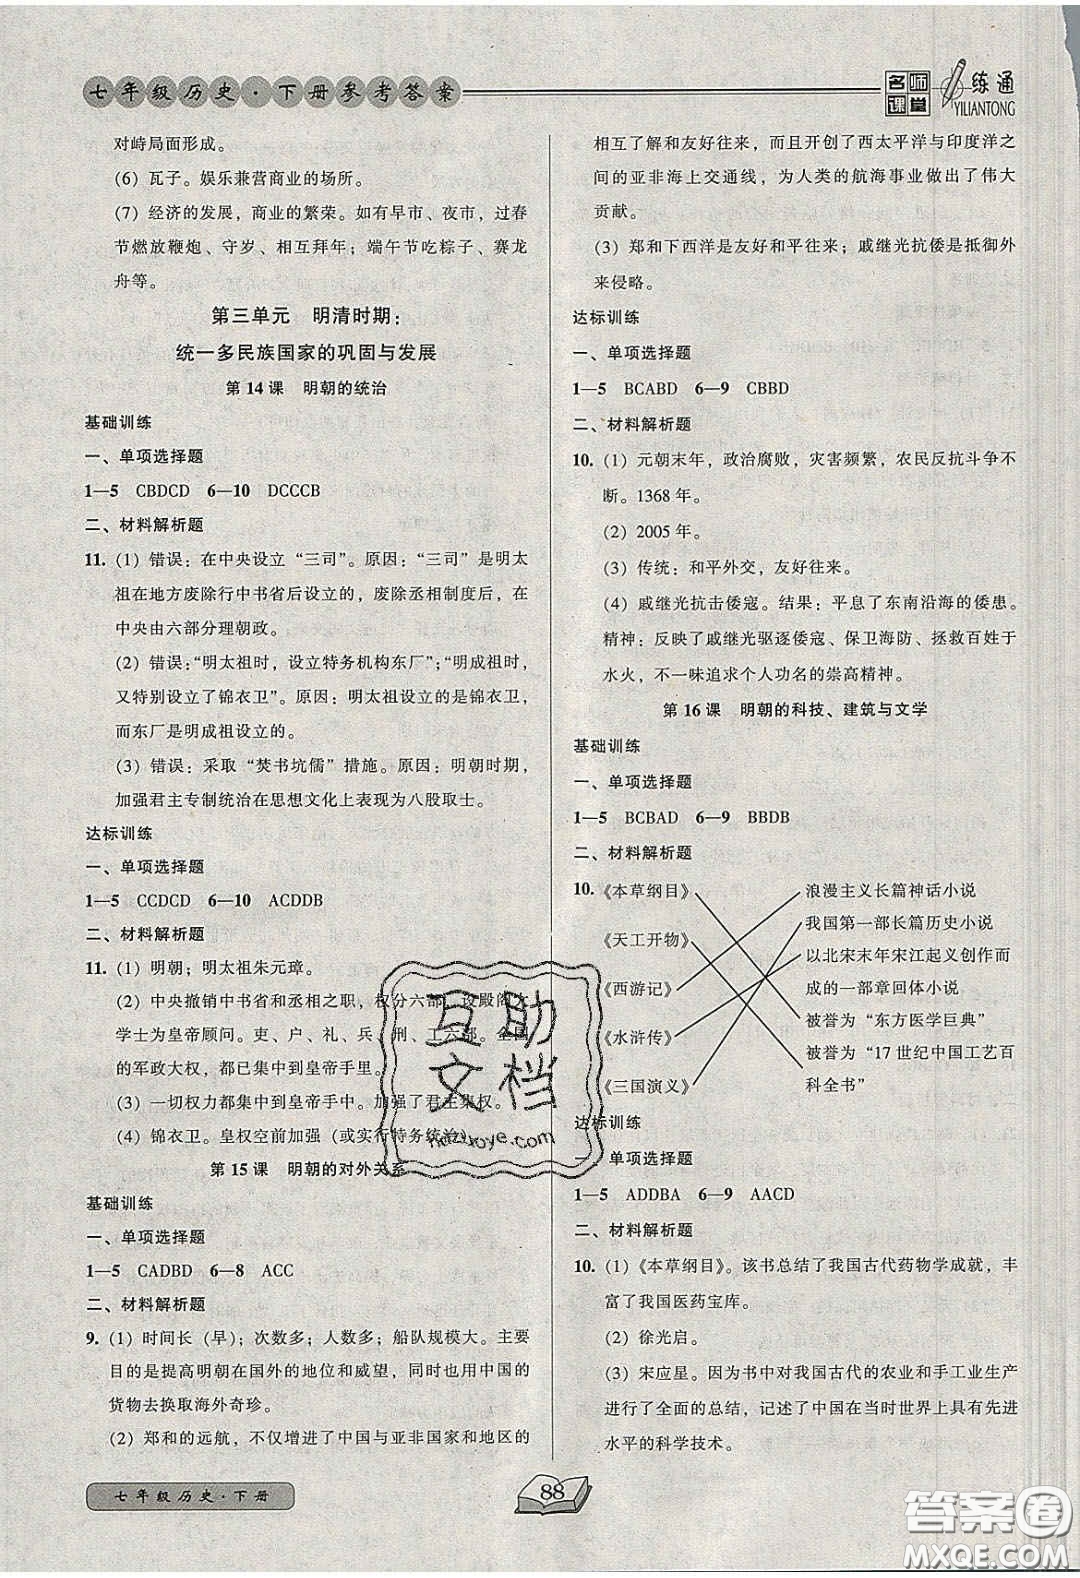 七年级历史·下册参考答案
名师课堂
一练通
YILIANTONG
对峙局面形成。
(6) 瓦子。娱乐兼营商业的场所。
(7) 经济的发展，商业的繁荣。如有早市、夜市，过春
节燃放鞭炮、守岁、相互拜年；端午节吃粽子、赛龙
舟等。
第三单元　明清时期：
统一多民族国家的巩固与发展
第 14 课　明朝的统治
基础训练
一、单项选择题
1—5　CBDCD　6—10　DCCCB
二、材料解析题
11. (1) 错误：在中央设立“三司”。原因：“三司”是明太
祖在地方废除行中书省后设立的，废除丞相制度后，在
中央由六部分理朝政。
(2) 错误：“明太祖时，设立特务机构东厂”；“明成祖时，
又特别设立了锦衣卫”。原因：明太祖设立的是锦衣卫，
东厂是明成祖设立的。
(3) 错误：采取“焚书坑儒”措施。原因：明朝时期，
加强君主专制统治在思想文化上表现为八股取士。
达标训练
一、单项选择题
1—5　CCDCD　6—10　ACDDB
二、材料解析题
11. (1) 明朝；明太祖朱元璋。
(2) 中央撤销中书省和丞相之职，权分六部，设殿阁大
学士为皇帝顾问。吏、户、礼、兵、刑、工六部。全国
的军政大权，都已集中到皇帝手里。
(3) 一切权力都集中到皇帝手中。加强了君主集权。
(4) 锦衣卫。皇权空前加强（或实行特务统治）。
第 15 课　明朝的对外关系
基础训练
一、单项选择题
1—5　CADBD　6—8　ACC
二、材料解析题
9. (1) 时间长（早）；次数多；人数多；船队规模大。主要
目的是提高明朝在国外的地位和威望，同时也用中国的
货物去换取海外奇珍。
(2) 郑和的远航，不仅增进了中国与亚非国家和地区的
相互了解和友好往来，而且开创了西太平洋与印度洋之
间的亚非海上交通线，为人类的航海事业做出了伟大
贡献。
(3) 郑和下西洋是友好和平往来；戚继光抗倭是抵御外
来侵略。
达标训练
一、单项选择题
1—5　BCABD　6—9　CBBD
二、材料解析题
10. (1) 元朝末年，政治腐败，灾害频繁，农民反抗斗争不
断。1368 年。
(2) 2005 年。
(3) 传统：和平外交，友好往来。
(4) 戚继光抗击倭寇。结果：平息了东南沿海的倭患。
精神：反映了戚继光驱逐倭寇、保卫海防、拯救百姓于
水火，不一味追求个人功名的崇高精神。
第 16 课　明朝的科技、建筑与文学
基础训练
一、单项选择题
1—5　BCBAD　6—9　BBDB
二、材料解析题
10. 《本草纲目》　浪漫主义长篇神话小说
我国第一部长篇历史小说
《天工开物》　以北宋末年宋江起义创作而
《西游记》　成的一部章回体小说
被誉为“东方医学巨典”
《水浒传》　被誉为“17 世纪中国工艺百
《三国演义》　科全书”
达标训练
一、单项选择题
1—5　ADDBA　6—9　AACD
二、材料解析题
10. (1)《本草纲目》。该书总结了我国古代药物学成就，丰
富了我国医药宝库。
(2) 徐光启。
(3) 宋应星。因为书中对我国古代的农业和手工业生产
进行了全面的总结，记述了中国在当时世界上具有先进
水平的科学技术。
互助
文档
hdzuoye.com
七年级历史·下册
88
答案圈
MXQE.COM